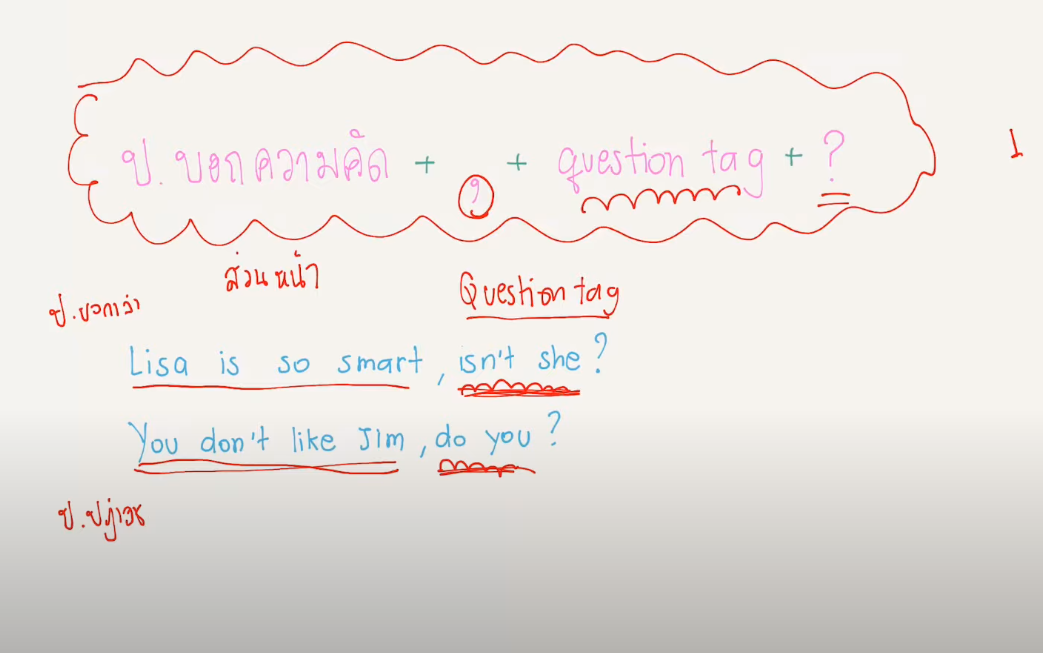 ป. บอกความคิด + , + question tag + ?
ส่วนหน้า
Question tag
ป. บอกเล่า
Lisa is so smart, isn't she?
You don't like Jim, do you?
ป.